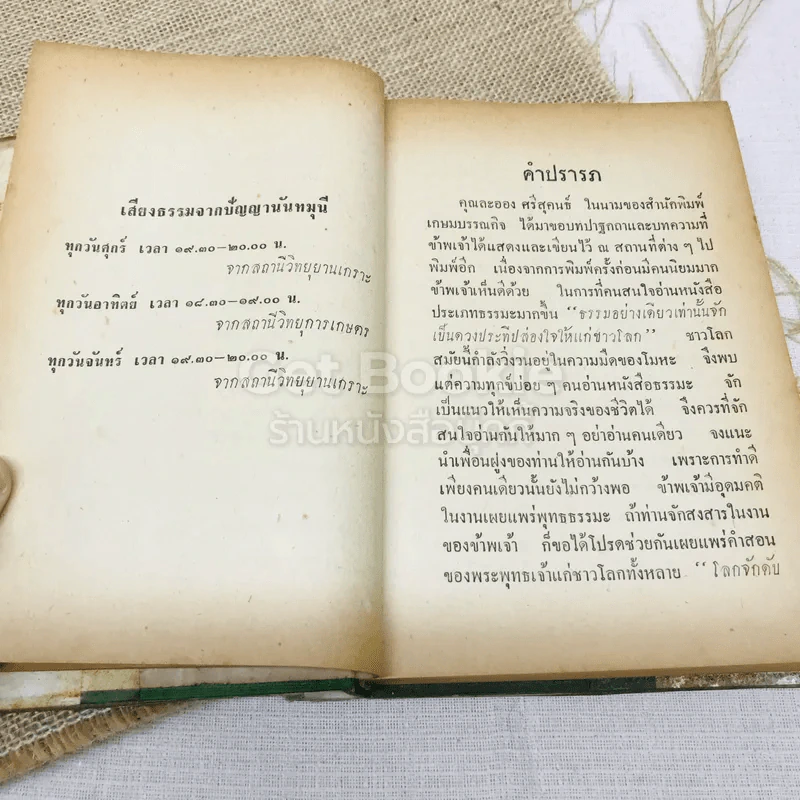 เสียงธรรมจากปัญญานันทมุนี
ทุกวันศุกร์ เวลา ๑๙.๓๐–๒๐.๐๐ น.
จากสถานีวิทยุยานเกราะ
ทุกวันอาทิตย์ เวลา ๑๘.๓๐–๑๙.๐๐ น.
จากสถานีวิทยุการเกษตร
ทุกวันจันทร์ เวลา ๑๙.๓๐–๒๐.๐๐ น.
จากสถานีวิทยุยานเกราะ
คำปรารภ
คุณละออง ศรีสุคนธ์ ในนามของสำนักพิมพ์
เกษมบรรณกิจ ได้มาขอบทปาฐกถาและบทความที่
ข้าพเจ้าได้แสดงและเขียนไว้ ณ สถานที่ต่าง ๆ ไป
พิมพ์อีก เนื่องจากการพิมพ์ครั้งก่อนมีคนนิยมมาก
ข้าพเจ้าเห็นดีด้วย ในการที่คนสนใจอ่านหนังสือ
ประเภทธรรมะมากขึ้น “ธรรมอย่างเดียวเท่านั้นจัก
เป็นดวงประทีปส่องใจให้แก่ชาวโลก” ชาวโลก
สมัยนี้กำลังวิ่งวนอยู่ในความมืดของโมหะ จึงพบ
แต่ความทุกข์บ่อย ๆ คนอ่านหนังสือธรรมะ จัก
เป็นแนวให้เห็นความจริงของชีวิตได้ จึงควรที่จัก
สนใจอ่านกันให้มาก ๆ อย่าอ่านคนเดียว จงแนะ
นำเพื่อนฝูงของท่านให้อ่านกันบ้าง เพราะการทำดี
เพียงคนเดียวนั้นยังไม่กว้างพอ ข้าพเจ้ามีอุดมคติ
ในงานเผยแพร่พุทธธรรมะ ถ้าท่านจักสงสารในงาน
ของข้าพเจ้า ก็ขอได้โปรดช่วยกันเผยแพร่คำสอน
ของพระพุทธเจ้าแก่ชาวโลกทั้งหลาย “โลกจักดับ
Get Bookie